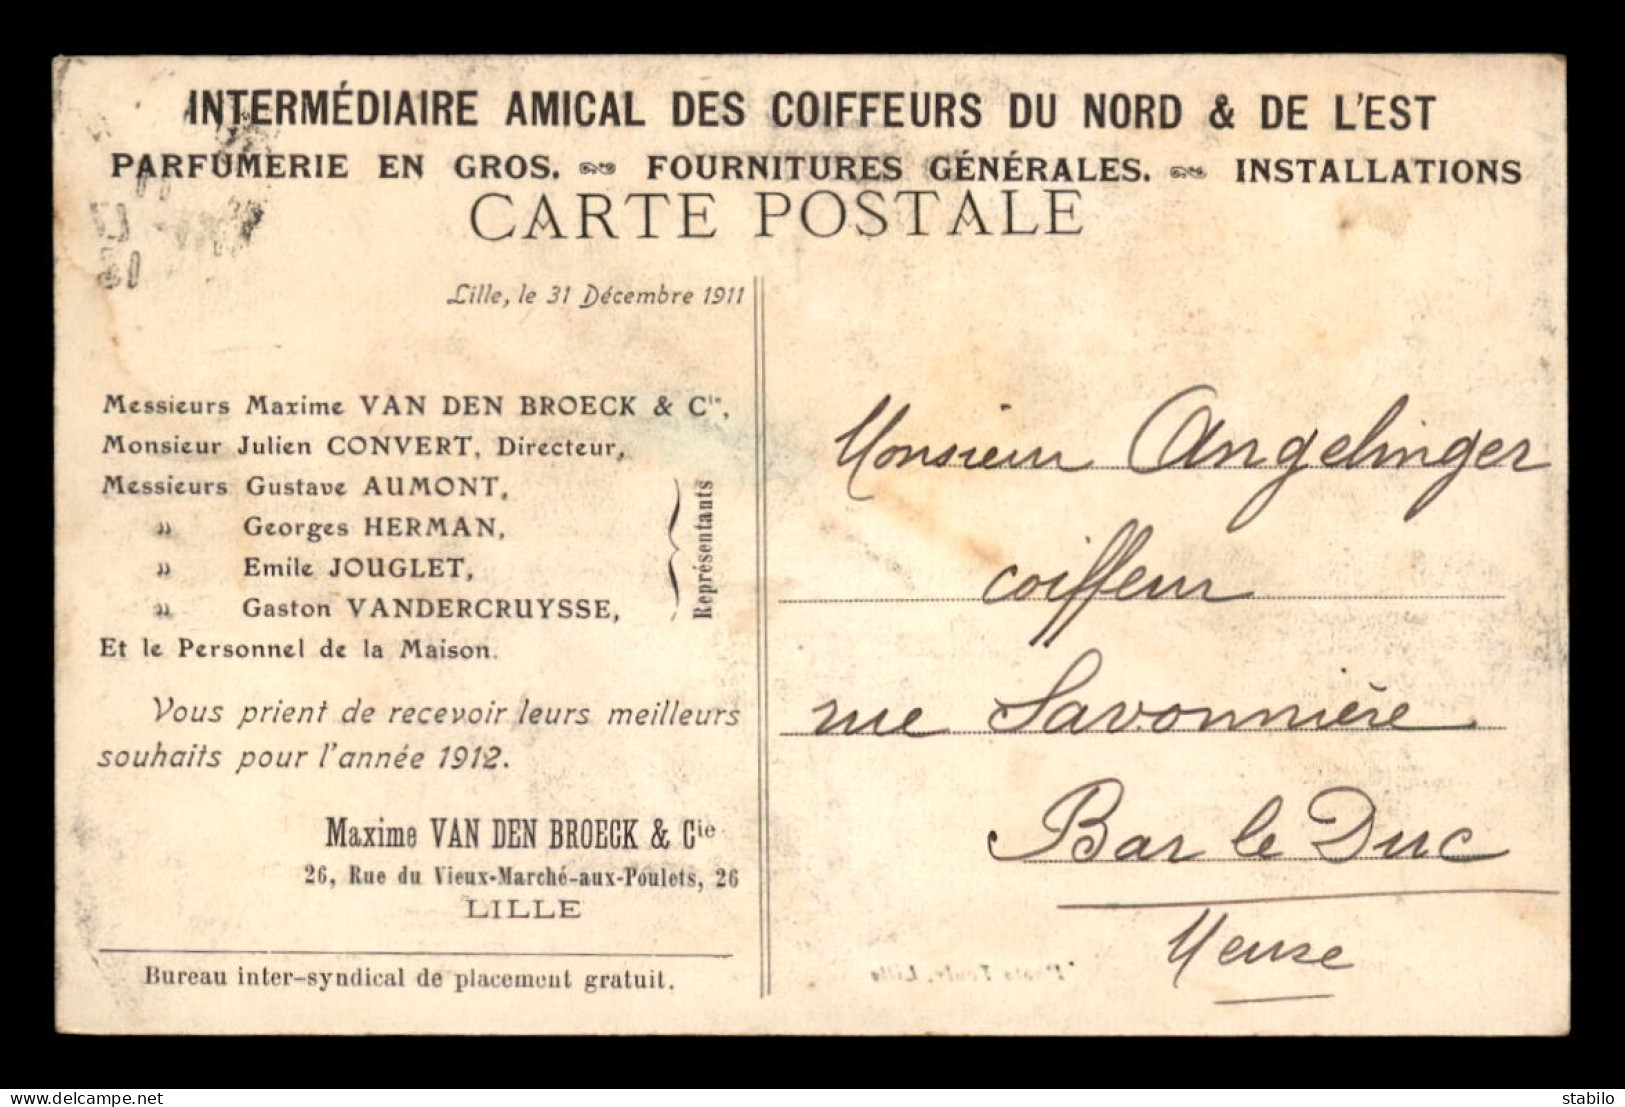 INTERMÉDIAIRE AMICAL DES COIFFEURS DU NORD & DE L'EST
PARFUMERIE EN GROS. FOURNITURES GÉNÉRALES. INSTALLATIONS
CARTE POSTALE
Lille, le 31 Décembre 1911
Messieurs Maxime VAN DEN BROECK & Cie,
Monsieur Julien CONVERT, Directeur,
Messieurs Gustave AUMONT,
» Georges HERMAN,
» Emile JOUGLET,
» Gaston VANDERCRUYSSE,
Représentants
Et le Personnel de la Maison.
Vous prient de recevoir leurs meilleurs
souhaits pour l'année 1912.
Maxime VAN DEN BROECK & Cie
26, Rue du Vieux-Marché-aux-Poulets, 26
LILLE
Bureau inter-syndical de placement gratuit.
Monsieur Angelinger
coiffeur
rue Savonnière
Bar le Duc
Meuse
delcampe.net
stabilo